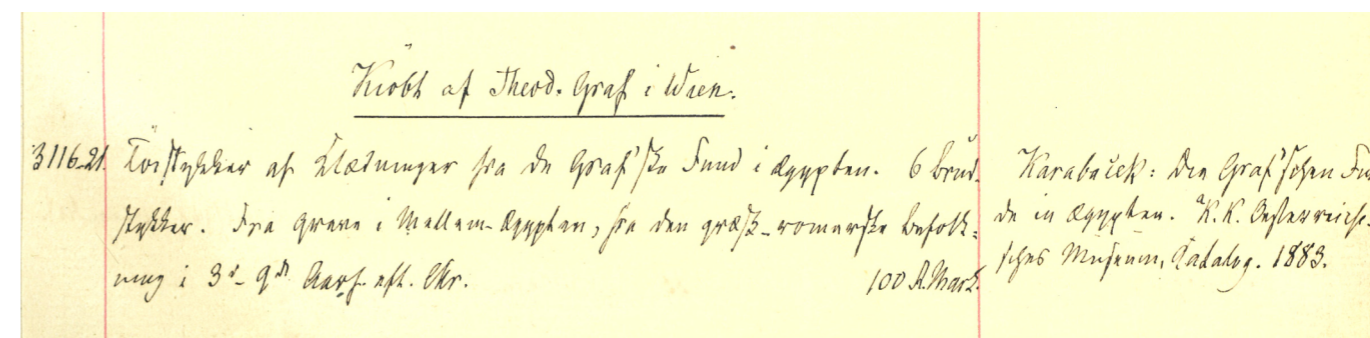 Kiöbt af Theod. Graf i Wien.
3116-21. Töistykker af Klædninger fra de Graf'ske Fund i Ægypten. 6 Brud-
stykker. Fra Grave i Mellem-Ægypten, fra den græsk-romerske Befolk-
ning i 3die-9de Aarh. eft. Chr. 100 R.Mark.
Karabaček: Die Graf'schen Fun-
de in Ægypten. K. K. Oesterreichi-
sches Museum, Catalog. 1883.